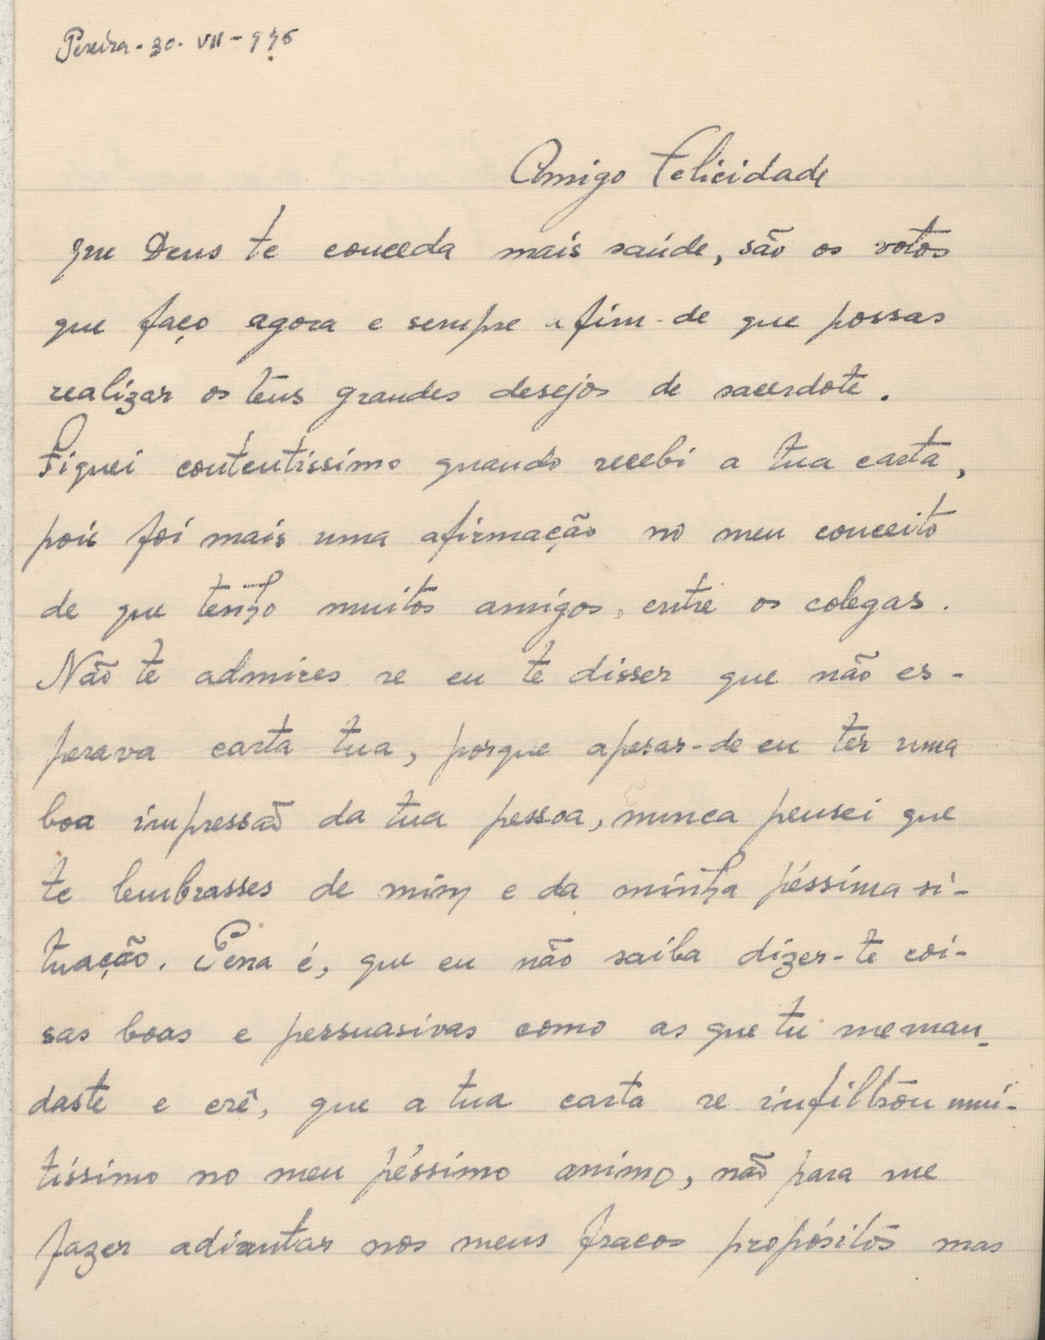 Pereira - 30 - VII - 946
Amigo Felicidade
que Deus te conceda mais saúde, são os votos
que faço agora e sempre afim-de que possas
realizar os teus grandes desejos de sacerdote.
Fiquei contentíssimo quando recebi a tua carta,
pois foi mais uma afirmação no meu conceito
de que tenho muitos amigos, entre os colegas.
Não te admires se eu te disser que não es-
perava carta tua, porque apesar-de eu ter uma
boa impressão da tua pessoa, nunca pensei que
te lembrasses de mim e da minha péssima si-
tuação. Pena é, que eu não saiba dizer-te coi-
sas boas e persuasivas como as que tu me man-
daste e crê, que a tua carta se infiltrou mui-
tíssimo no meu péssimo animo, não para me
fazer adiantar nos meus fracos propósitos mas